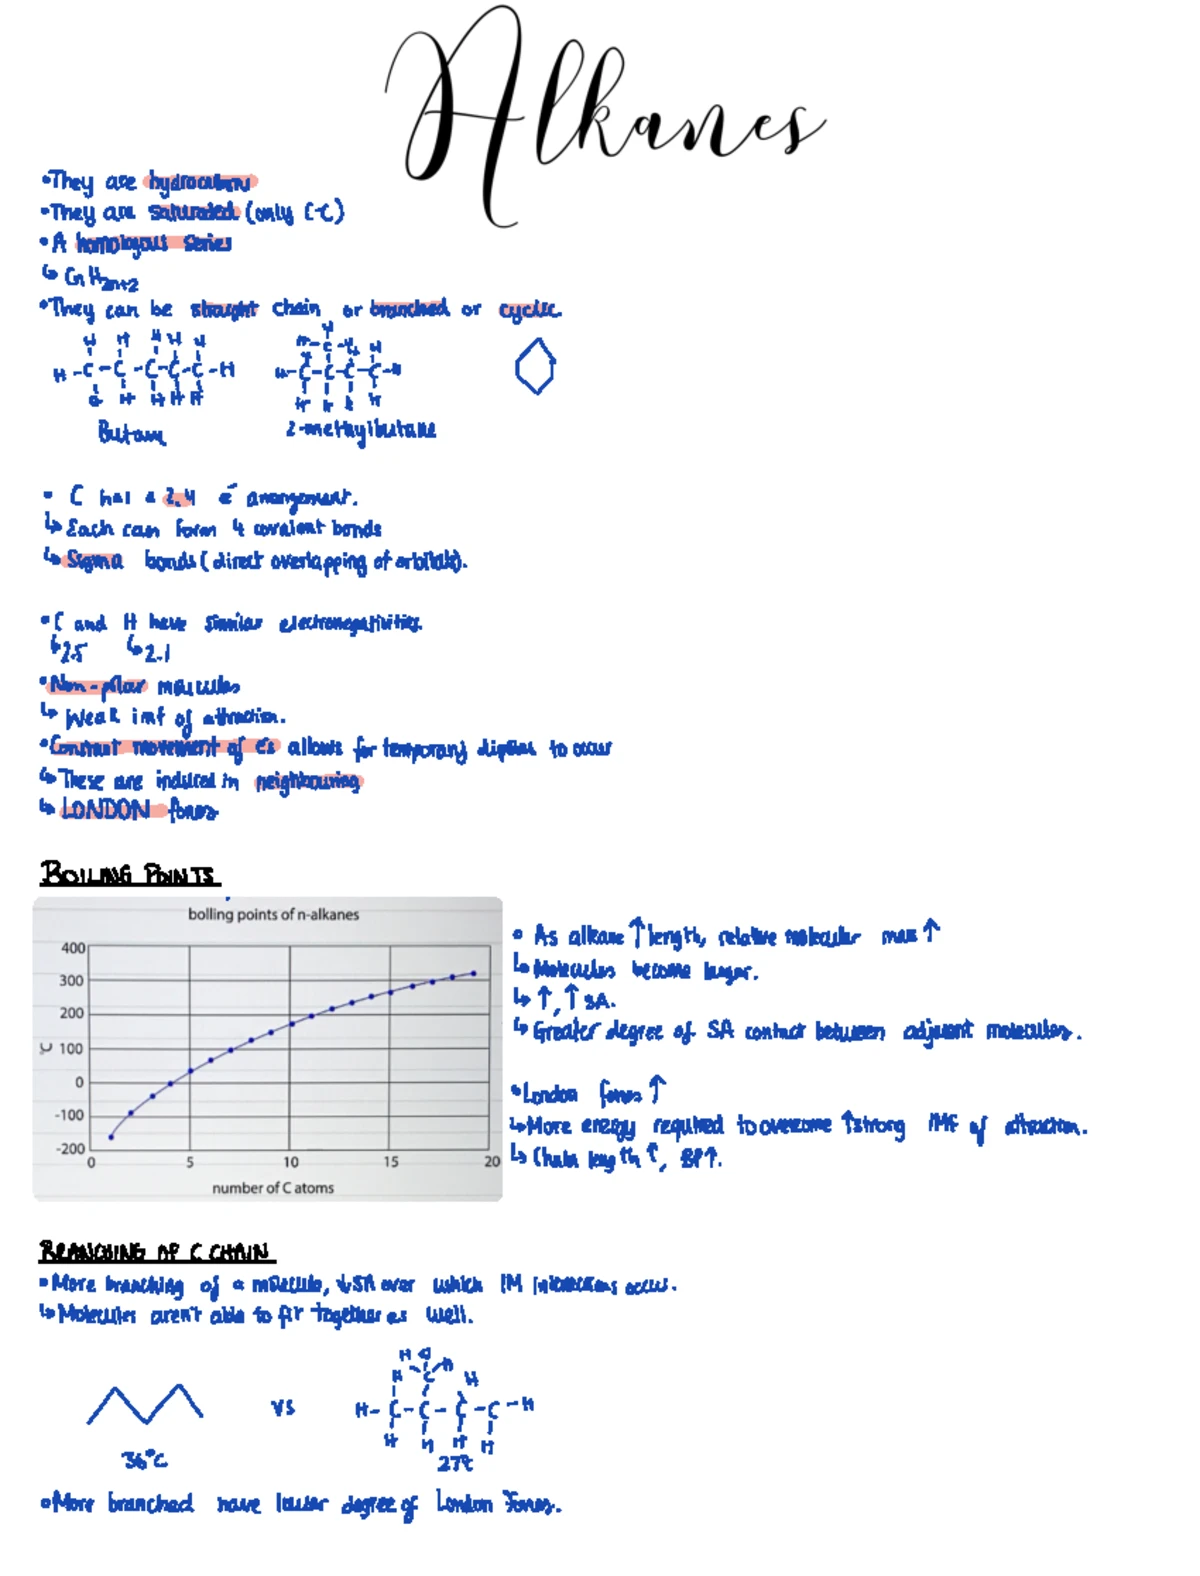 Alkanes
•They are hydrocarbons
•They are saturated (only C-C)
•A homologous series
↳ CnH2n+2
•They can be straight chain or branched or cyclic.
H H H H H
H-C-C-C-C-C-H
H H H H
H
H-C-H H
H-C-C-C-C-H
H H H H
Butane
2-methylbutane
• C has a 2.4 e⁻ arrangement.
↳ Each can form 4 covalent bonds
↳ Sigma bonds (direct overlapping of orbitals).
•C and H have similar electronegativities.
↳2.5 ↳2.1
•Non-polar molecules
↳ Weak imf of attraction.
•Constant movement of e's allows for temporary dipoles to occur
↳ These are induced in neighbouring
↳ LONDON forces
BOILING POINTS
boiling points of n-alkanes
400
300
200
100
0
-100
-200
°C
0 5 10 15 20
number of C atoms
• As alkane ↑length, relative molecular mass ↑
↳ Molecules become larger.
↳ ↑, ↑ SA.
↳ Greater degree of SA contact between adjacent molecules.
•London forces ↑
↳More energy required to overcome ↑strong IMF of attraction.
↳ Chain length ↑, BP↑.
BRANCHING OF C CHAIN
•More branching of a molecule, ↓SA over which IM interactions occur.
↳ Molecules aren't able to fit together as well.
H H
H C H H
H-C-C-C-C-H
H H H H
vs
36°C
27°C
•More branched have lower degree of London forces.